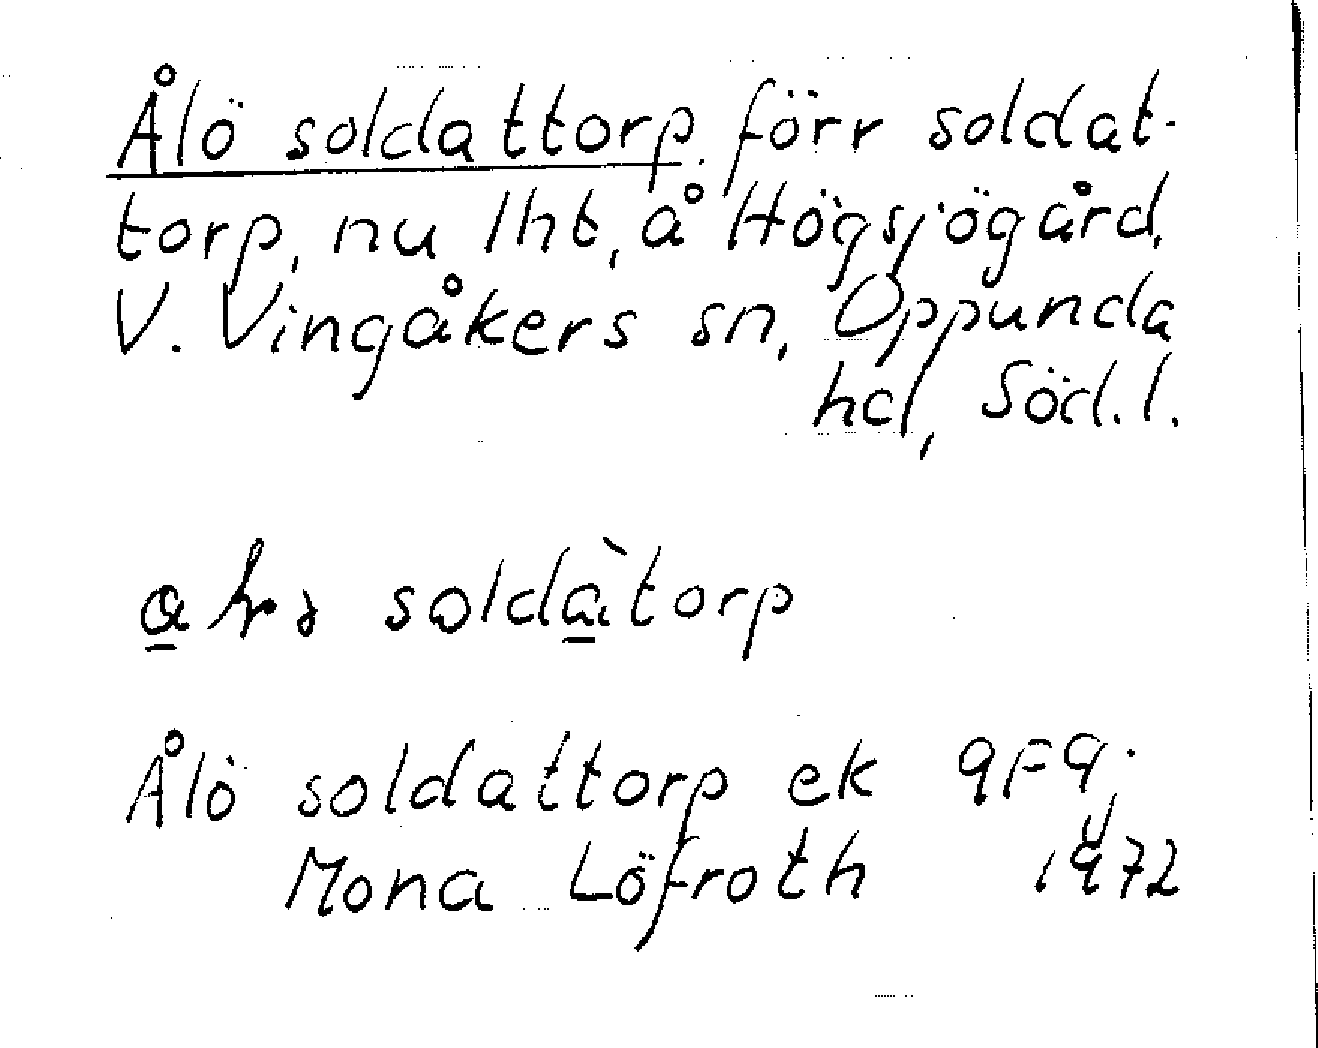 Ålö soldattorp, förr soldat-
torp, nu lht, å Högsjögård,
V. Vingåkers sn, Oppunda
hd, Söd.l.
soldàtorp
Ålö soldattorp ek 9F9j
Mona Löfroth 1972